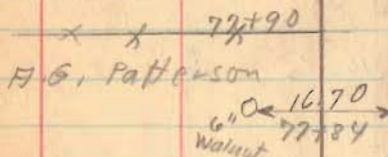 77+90
A.G. Patterson
16.70
6" Walnut
77+84